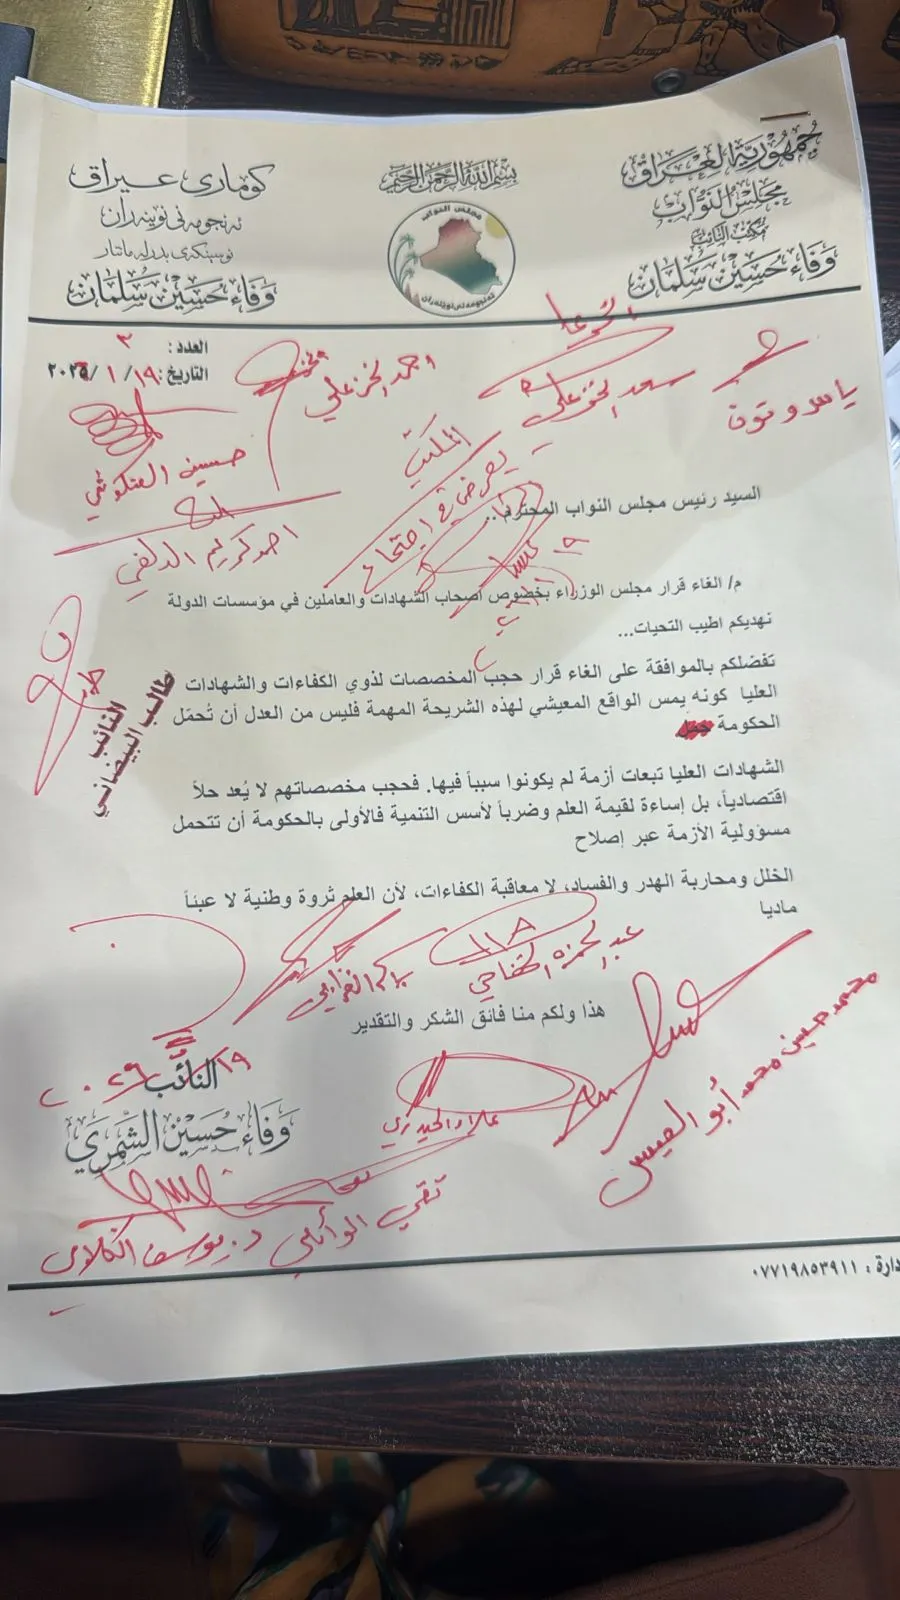 جمهورية العراق
مجلس النواب
مكتب النائب
وفاء حسين سلمان
بسم الله الرحمن الرحيم
مجلس النواب
ئەنجومەنی نوێنەران
كۆماری عێراق
ئەنجومەنی نوێنەران
وفاء حسين سلمان
العدد: ٣
التاريخ: ١٩/ ١ /٢٠٢٦
سعد الخزعلي
احمد الخزعلي
ياسر وتوت
حسين العنكوشي
المكتب
يعرض في اجتماع
احمد كريم الدلفي
السيد رئيس مجلس النواب المحترم..
م/ الغاء قرار مجلس الوزراء بخصوص اصحاب الشهادات والعاملين في مؤسسات الدولة
نهديكم اطيب التحيات...
تفضلكم بالموافقة على الغاء قرار حجب المخصصات لذوي الكفاءات والشهادات
العليا كونه يمس الواقع المعيشي لهذه الشريحة المهمة فليس من العدل أن تُحمّل
الحكومة
النائب
طالب البيضاني
الشهادات العليا تبعات أزمة لم يكونوا سبباً فيها. فحجب مخصصاتهم لا يُعد حلاً
اقتصادياً، بل إساءة لقيمة العلم وضرباً لأسس التنمية فالأولى بالحكومة أن تتحمل
مسؤولية الأزمة عبر إصلاح
الخلل ومحاربة الهدر والفساد، لا معاقبة الكفاءات، لأن العلم ثروة وطنية لا عبئاً
ماديا
عبد الحمزة الخفاجي
هذا ولكم منا فائق الشكر والتقدير
محمد حسين محمد أبو العيس
النائب
وفاء حسين الشمري
علاء الحيدري
تقي الوائلي
د. يوسف الكلابي
دارة : ٠٧٧١٩٨٥٣٩١١